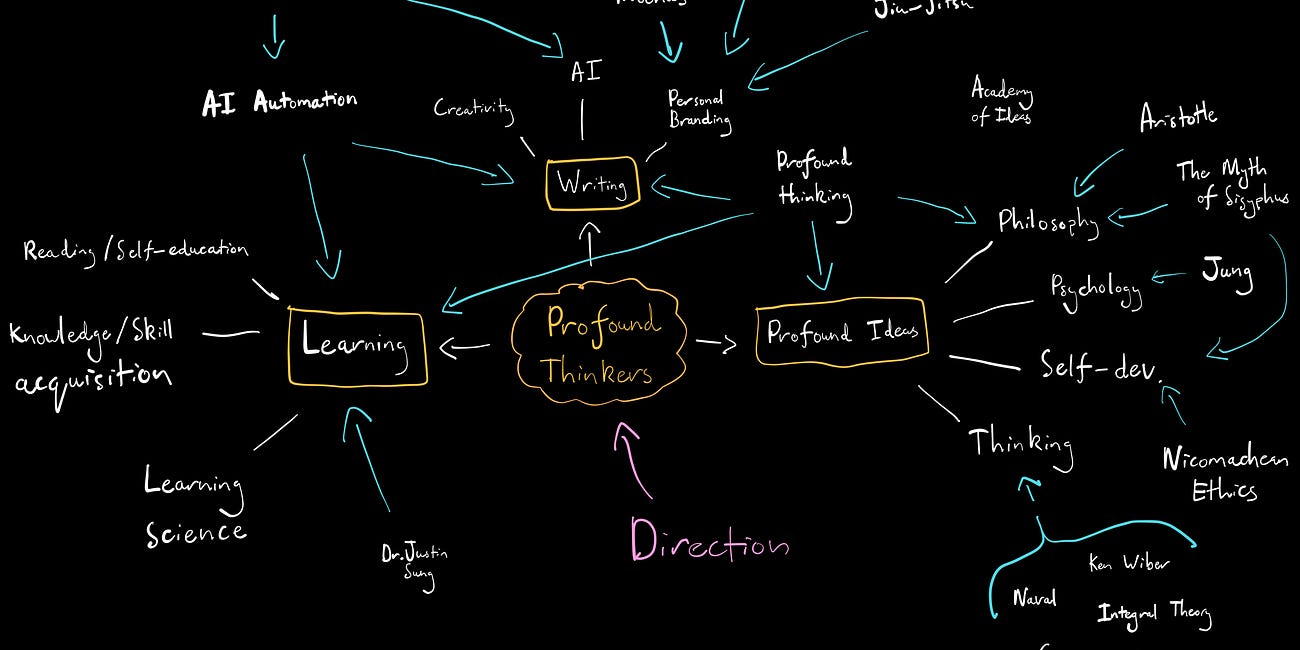 Jiu-Jitsu
AI
AI Automation
Creativity
Personal
Branding
Academy
of Ideas
Aristotle
Writing
Profound
thinking
The Myth
of Sisyphus
Philosophy
Reading/Self-education
Psychology
Jung
Knowledge/Skill
acquisition
Learning
Profound
Thinkers
Profound Ideas
Self-dev.
Thinking
Nicomachean
Ethics
Learning
Science
Direction
Dr. Justin
Sung
Ken Wiber
Naval
Integral Theory